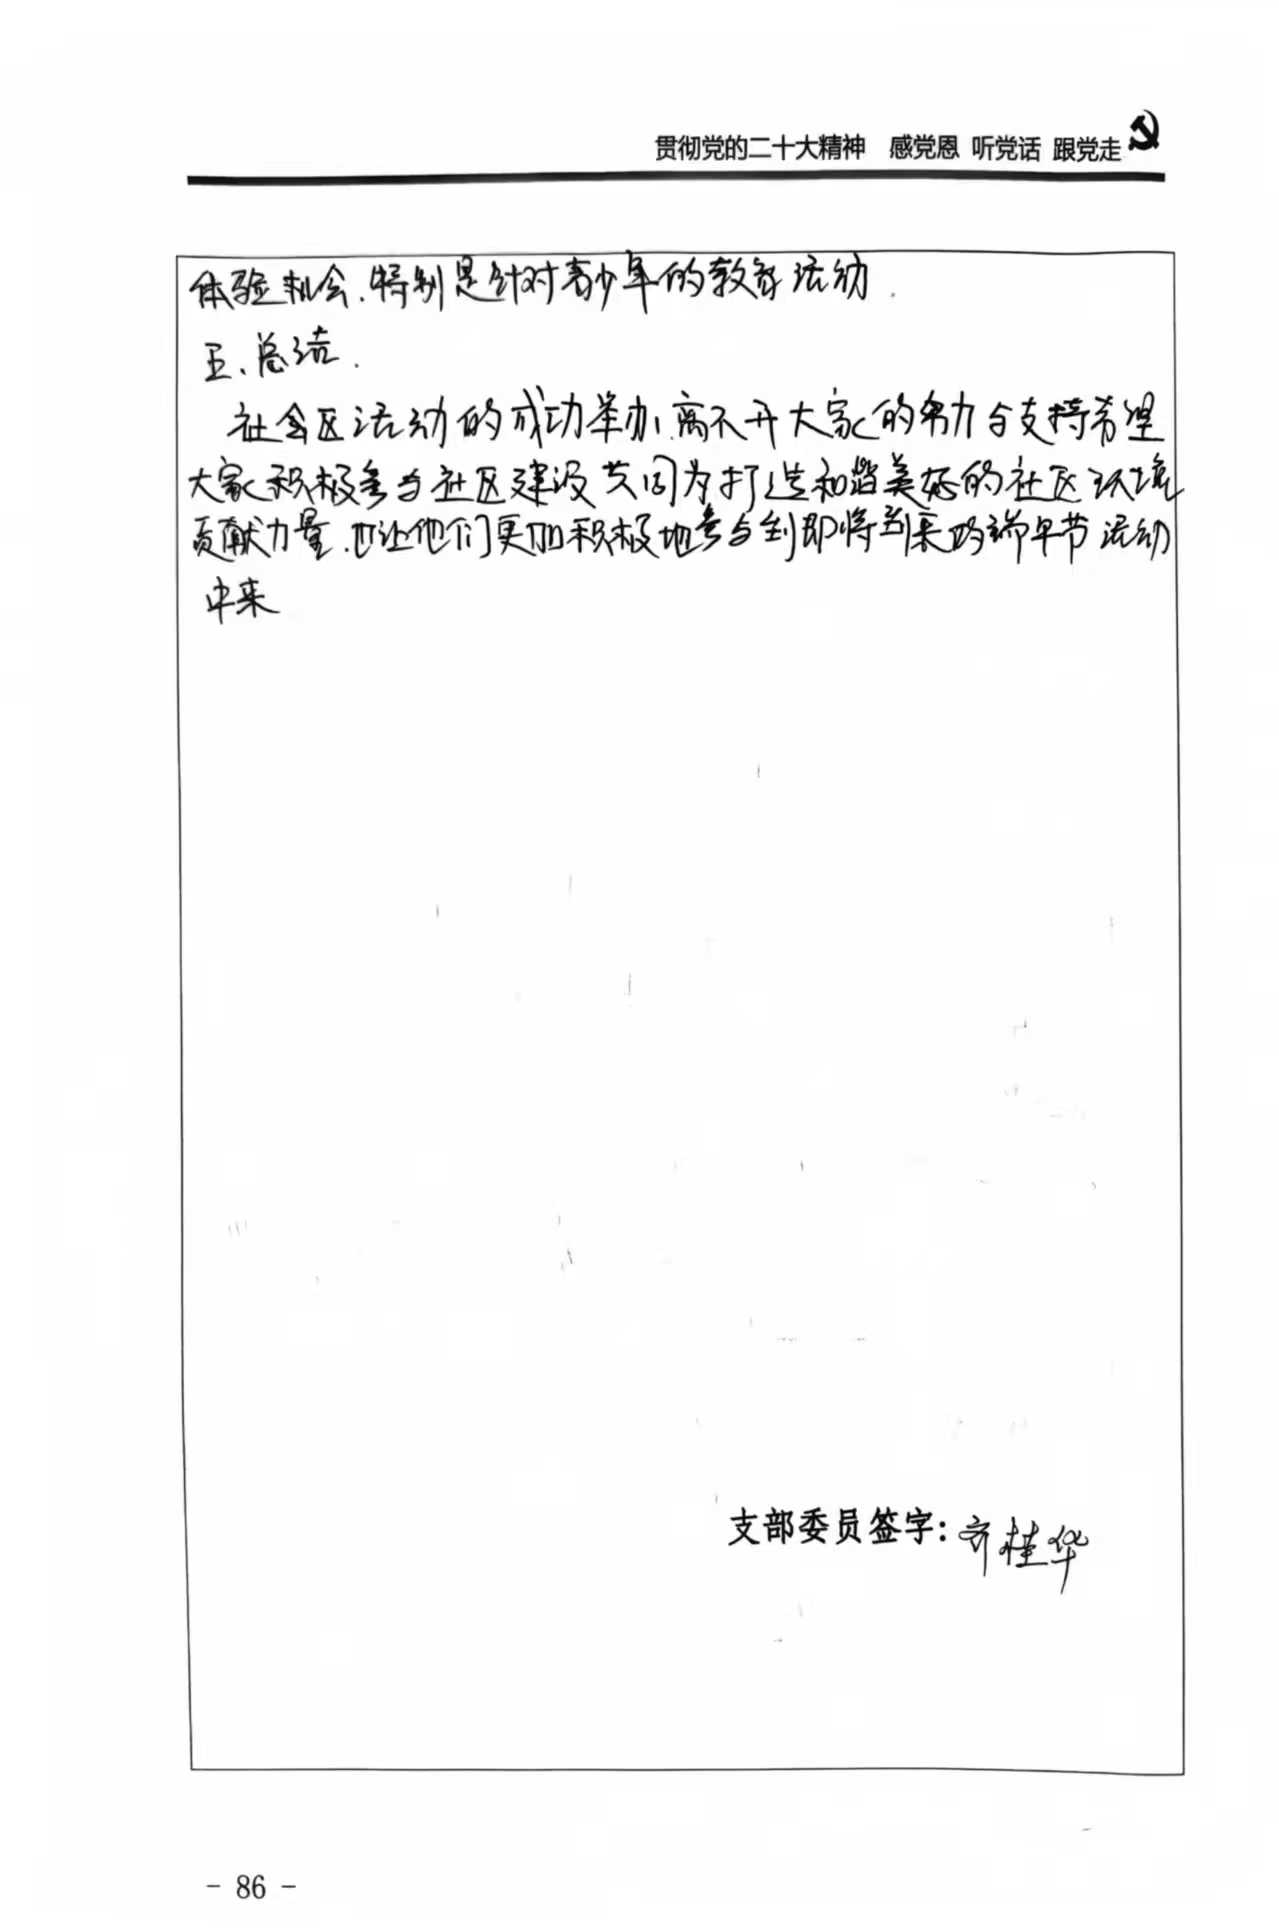 贯彻党的二十大精神 感党恩 听党话 跟党走
体验机会、特别是针对青少年的教育活动.
五、总结.
社会区活动的成功举办、离不开大家的努力与支持希望
大家积极参与社区建设共同为打造和谐美好的社区环境
贡献力量、也让他们更加积极地参与到即将到来的端午节活动
中来
支部委员签字：齐桂华
- 86 -